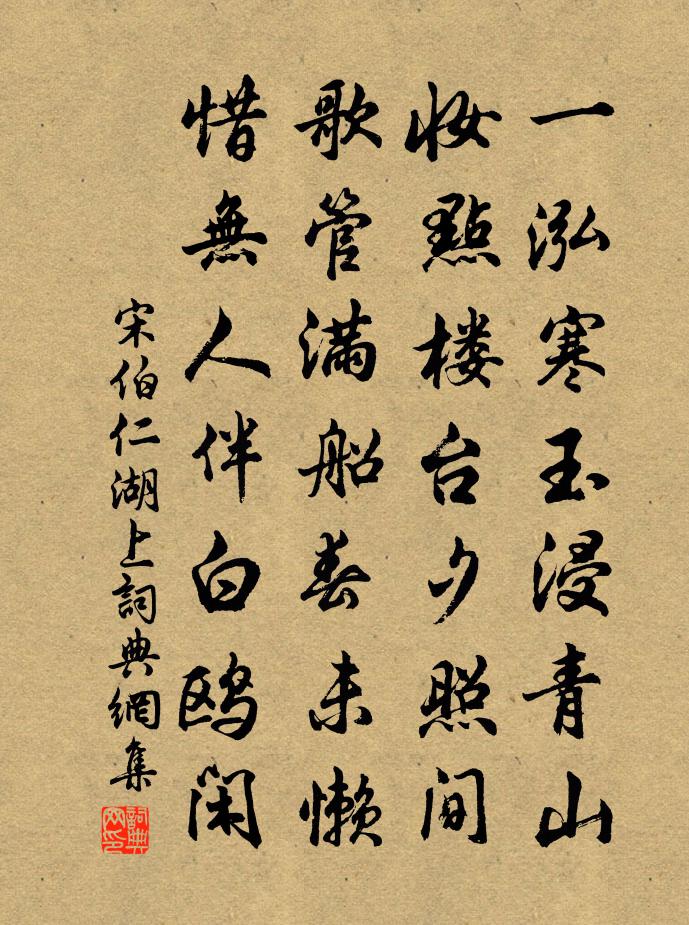 一泓寒玉浸青山
妝點楼台夕照间
歌管满船春未懒
惜無人伴白鸥闲
宋伯仁湖上詞典網集
詞典网印